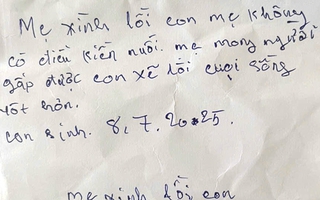 Mẹ xình lỗi con mẹ không
có điều kiến nuôi. mẹ mong người
gấp được con xẽ lời cuọi sống
tốt hơn.
con sinh. 8.7.2025.
mẹ xinh lỗi con